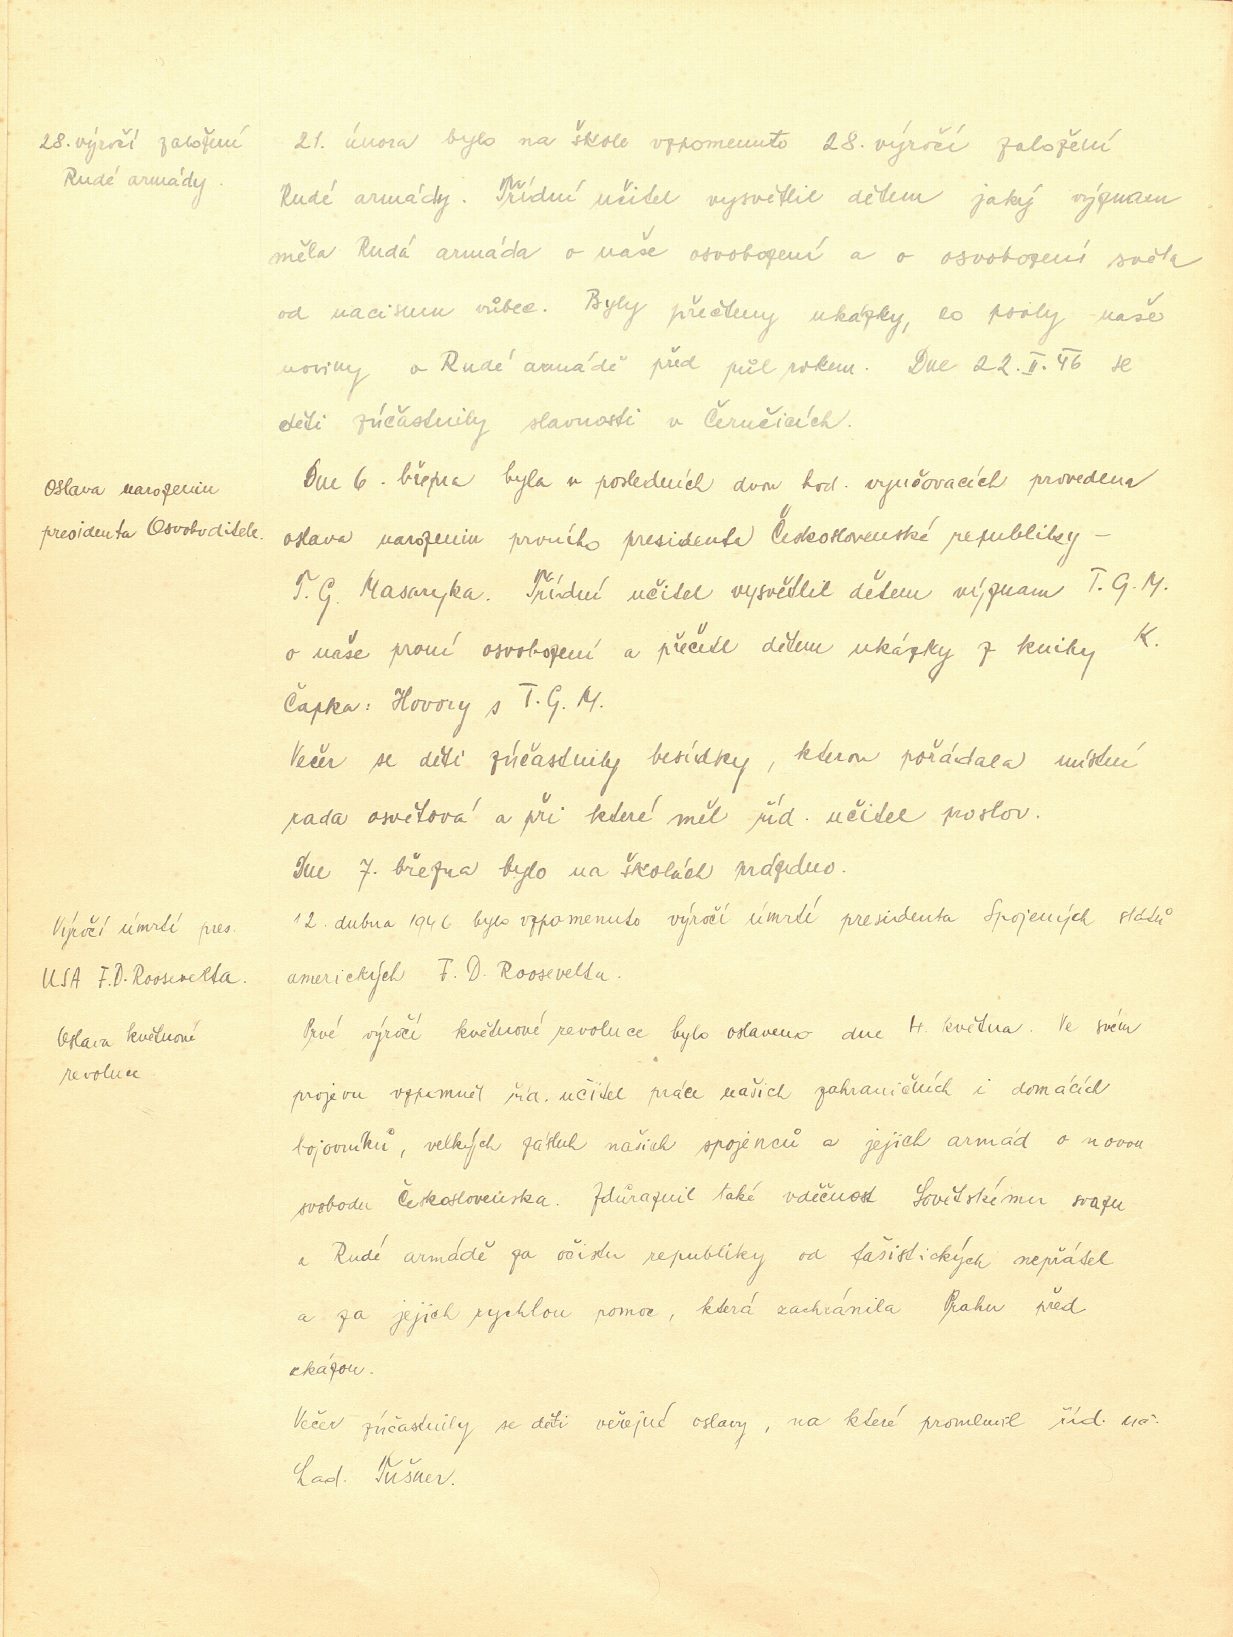 28. výročí založení
Rudé armády.
21. února bylo na škole vzpomenuto 28. výročí založení
Rudé armády. Třídní učitel vysvětlil dětem jaký význam
měla Rudá armáda o naše osvobození a o osvobození světa
od nacismu vůbec. Byly přečteny ukázky, co psaly naše
noviny o Rudé armádě před půl rokem. Dne 22.II.46 se
děti zúčastnily slavnosti v Černčicích.
Oslava narozenin
presidenta Osvoboditele.
Dne 6. března byla v posledních dvou hod. vyučovacích provedena
oslava narozenin prvního presidenta Československé republiky –
T. G. Masaryka. Třídní učitel vysvětlil dětem význam T. G. M.
o naše první osvobození a přečetl dětem ukázky z knihy K.
Čapka: Hovory s T. G. M.
Večer se děti zúčastnily besídky, kterou pořádala místní
rada osvětová a při které měl říd. učitel proslov.
Dne 7. března bylo na školách prázdno.
Výročí úmrtí pres.
USA F.D. Roosevelta.
12. dubna 1946 bylo vzpomenuto výročí úmrtí presidenta Spojených států
amerických F. D. Roosevelta.
Oslava květnové
revoluce
Prvé výročí květnové revoluce bylo oslaveno dne 4. května. Ve svém
projevu vzpomněl říd. učitel práce našich zahraničních i domácích
bojovníků, velkých zásluh našich spojenců a jejich armád o novou
svobodu Československa. Zdůraznil také vděčnost Sovětskému svazu
a Rudé armádě za očistu republiky od fašistických nepřátel
a za jejich rychlou pomoc, která zachránila Prahu před
zkázou.
Večer zúčastnily se děti veřejné oslavy, na které promluvil říd. uč.
Lad. Tušner.